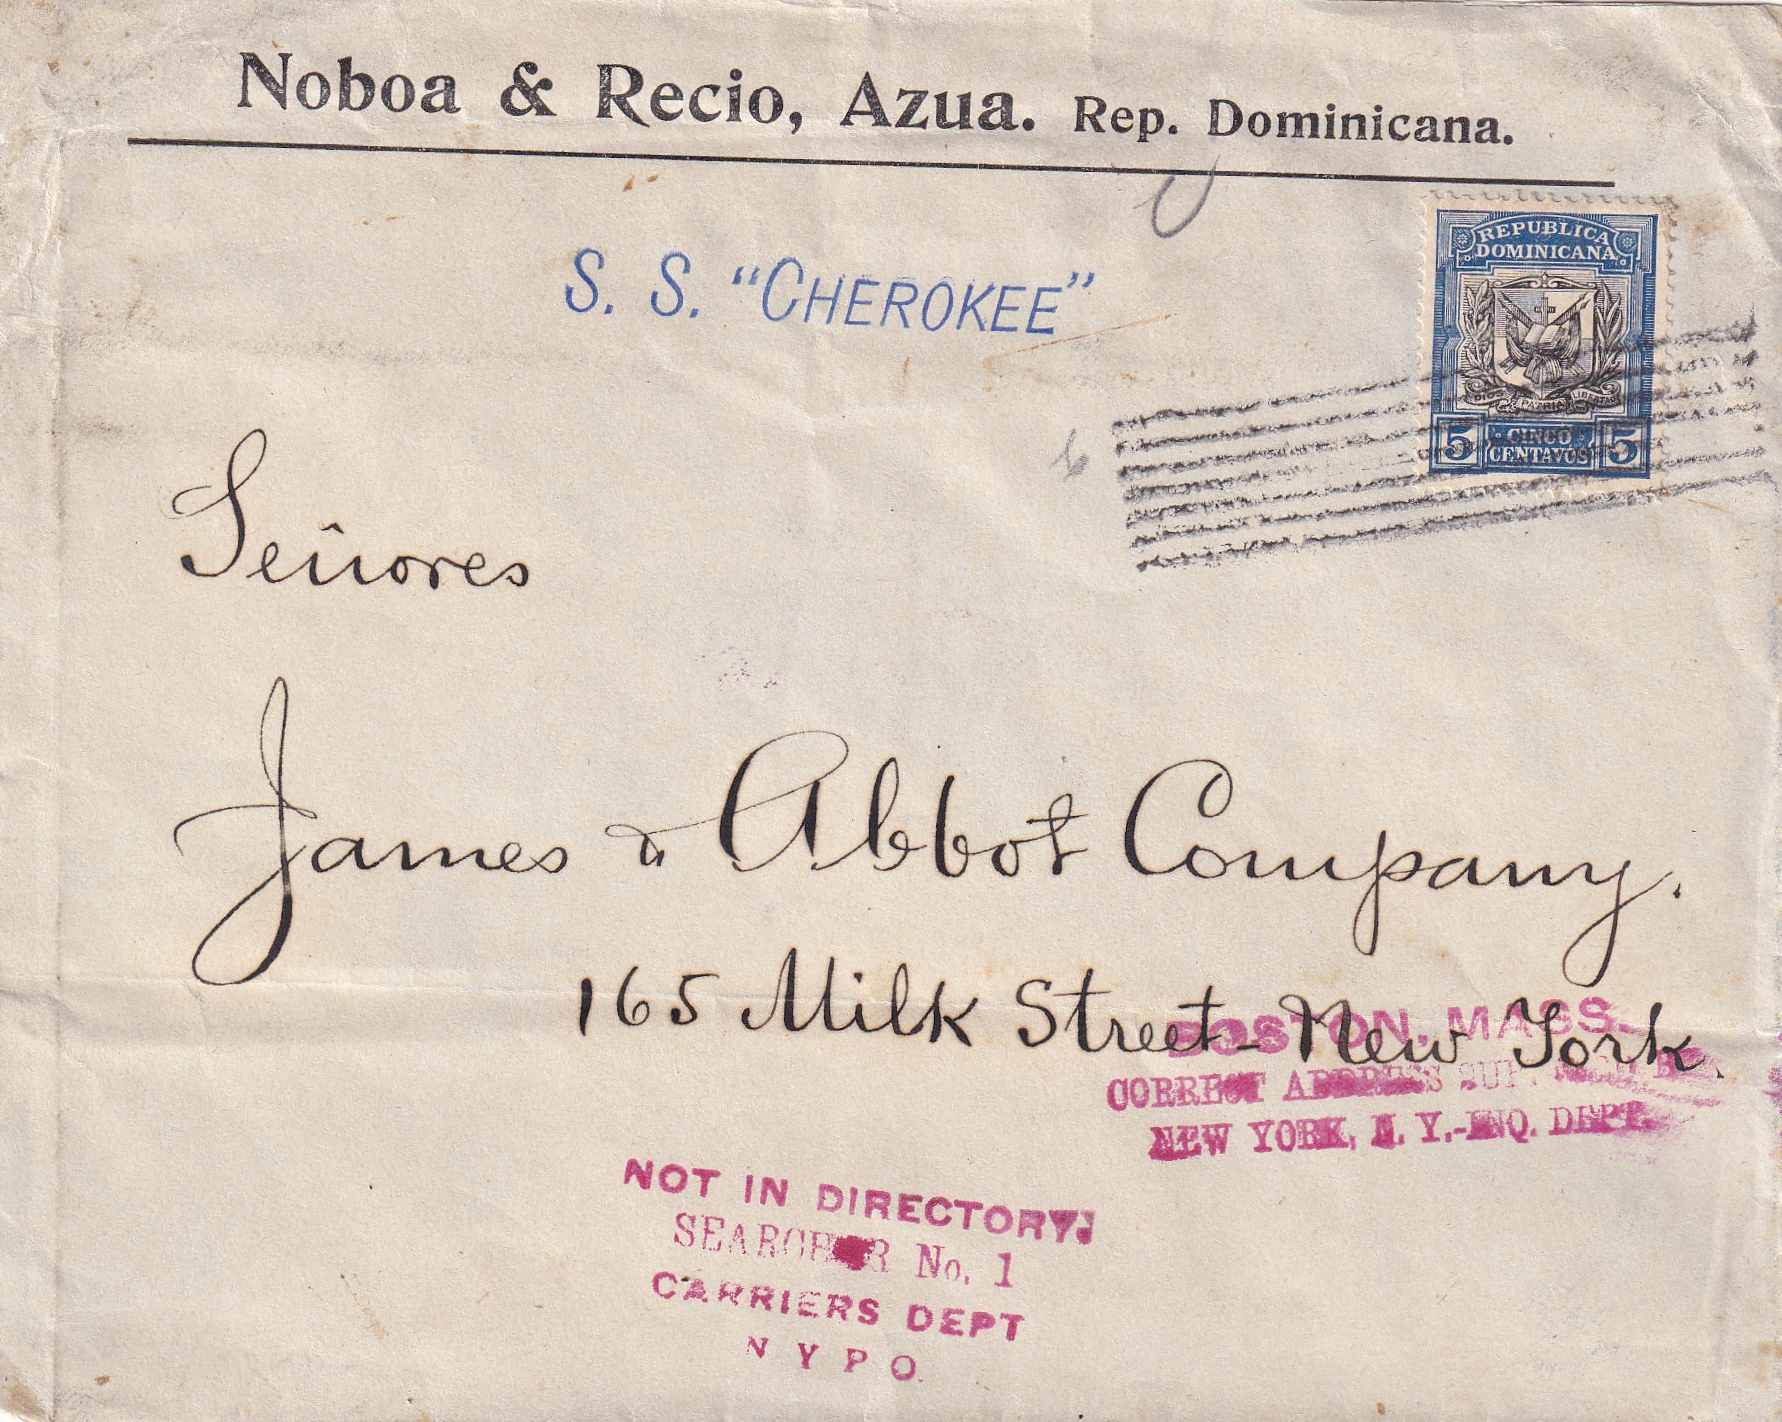 Noboa & Recio, Azua. Rep. Dominicana.
S. S. "CHEROKEE"
REPUBLICA
DOMINICANA
DIOS PATRIA LIBERTAD
5 CINCO CENTAVOS 5
Señores
James & Abbot Company.
165 Milk Street - New York.
BOSTON, MASS.
CORRECT ADDRESS
NEW YORK, N. Y.-INQ. DEPT.
NOT IN DIRECTORY:
SEARCHER No. 1
CARRIERS DEPT
N Y P O.